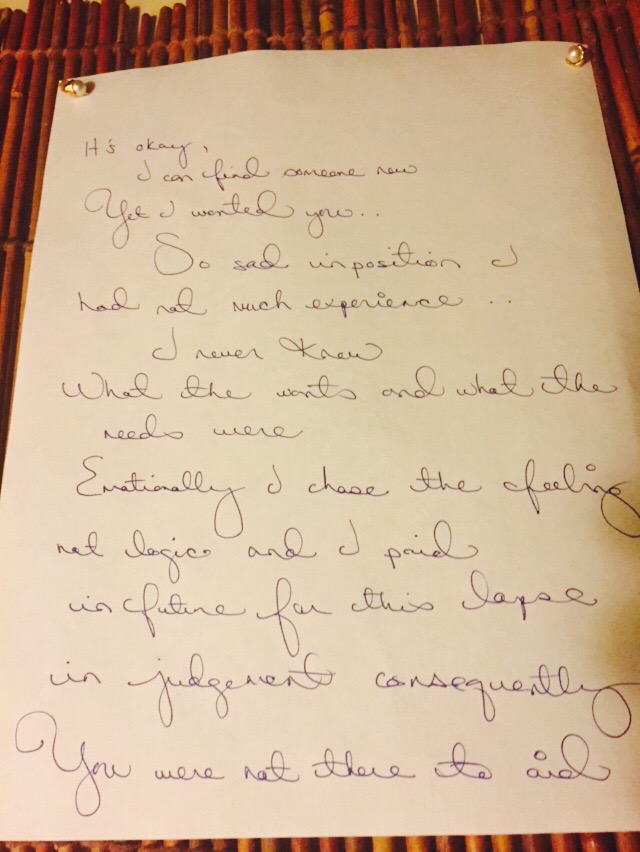 It's okay,
I can find someone new
Yet I wanted you..
So sad inposition I
had not much experience ..
I never knew
What the wants and what the
needs were
Emotionally I chase the feeling
not logic and I paid
in future for this lapse
in judgement consequently
You were not there to aid